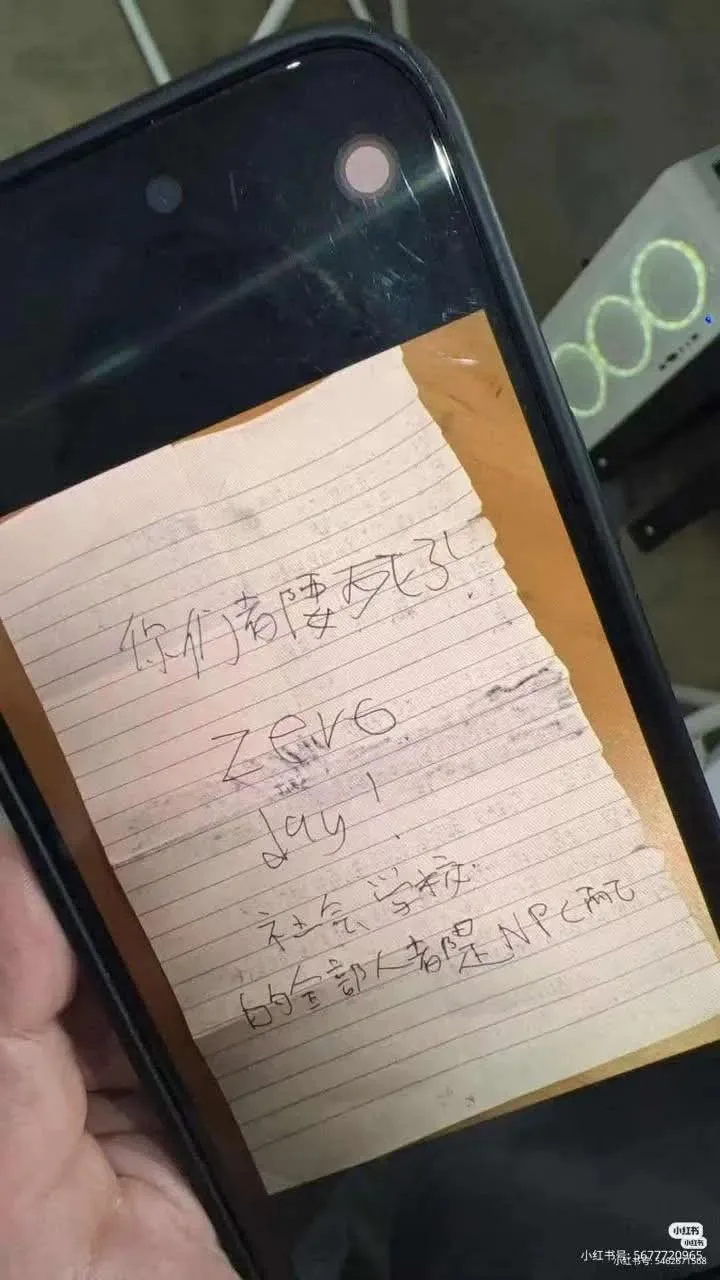 你们都要死了!
zero
day!
社会学校
的全部人都是NPC而已
小红书
小红书
小红书号: 5677720965
小红书号: 5462871568